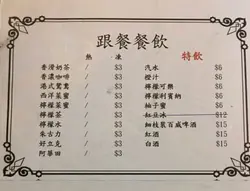 跟餐餐飲
熱 凍 特飲
香滑奶茶 / $3 汽水 $6
香濃咖啡 / $3 橙汁 $6
港式鴛鴦 / $3 檸檬可樂 $6
西洋菜蜜 / $3 檸檬利賓納 $6
檸檬菜蜜 / $3 柚子蜜 $6
檸檬茶 / $3 紅豆冰 $12
檸檬水 / $3 細枝裝百威啤酒 $15
朱古力 / $3 紅酒 $15
好立克 / $3 白酒 $15
阿華田 / $3